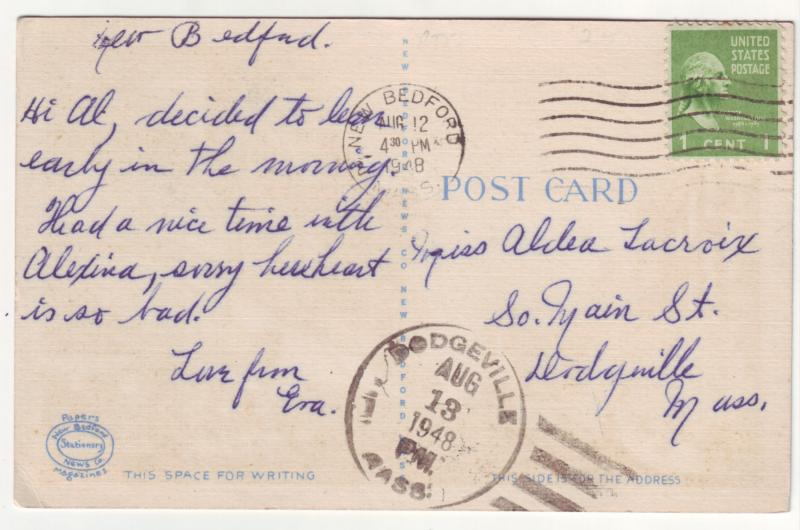 New Bedford.
Hi Al, decided to leave
early in the morning.
Had a nice time with
Alexina, sorry her heart
is so bad.
Love from
Eva.
Papers
New Bedford
Stationery
News Co.
Magazines
THIS SPACE FOR WRITING
NEW BEDFORD NEWS CO NEW BEDFORD MASS
NEW BEDFORD
AUG 12
430 PM
1948
MASS
UNITED
STATES
POSTAGE
WASHINGTON
1 CENT 1
POST CARD
Miss Aldea Lacroix
So. Main St.
Dodgeville
Mass.
DODGEVILLE
AUG
13
1948
PM.
MASS.
THIS SIDE IS FOR THE ADDRESS